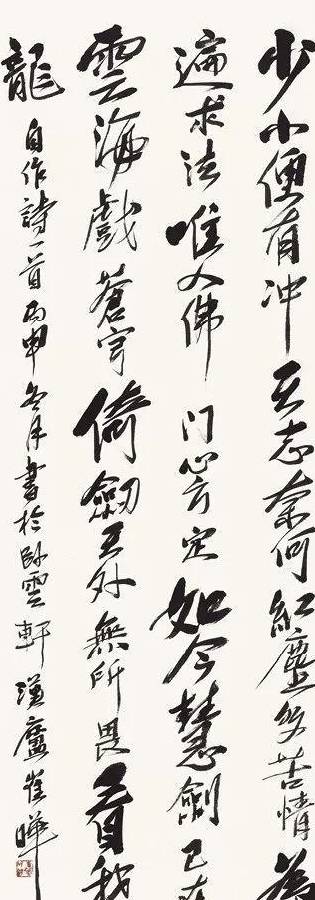 少小便有冲天志奈何红尘多苦情为
遍求法唯入佛门心方定如今慧劍已在
雲海戲蒼穹倚劍天外無所畏看我
龍
自作詩一首丙申冬月書於卧雲軒漢廬崔曄